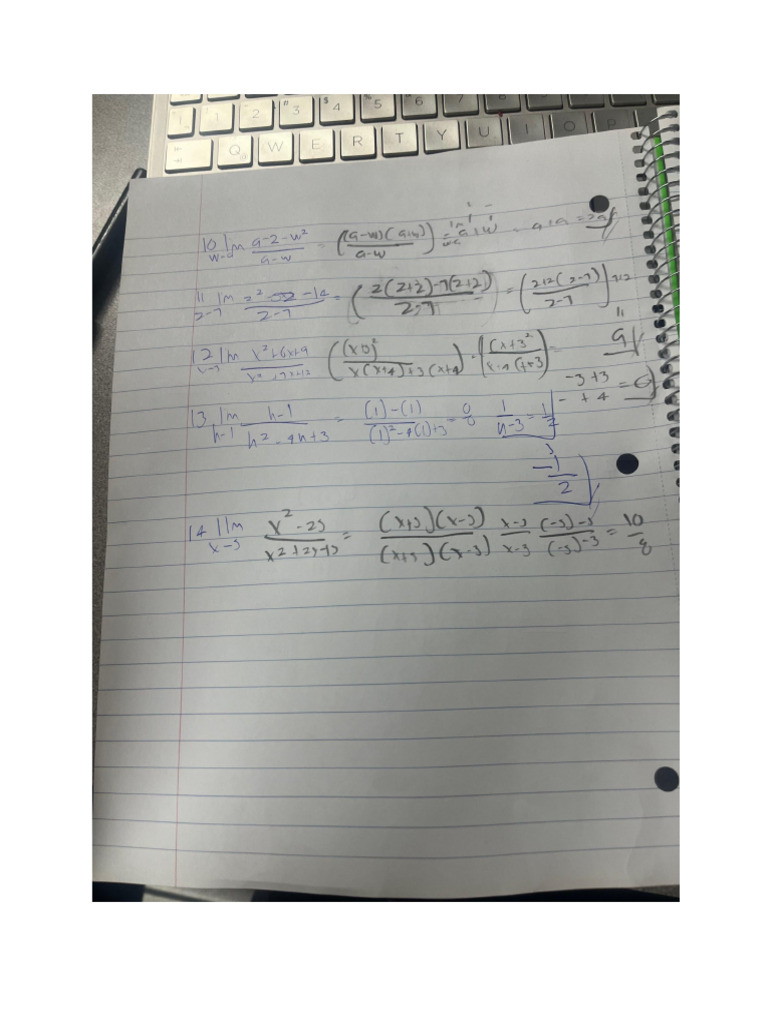 1 1 2 " 3 $ 4 5 6 7 8
Q W E R T Y U I O P
10 lim w-a a-2-w² / a-w = ((a-w)(a+w) / a-w) = lim w-a a+w = a+a = 2a
11 lim z-7 z²-5z-14 / z-7 = (z(z+2)-7(z+2) / z-7) = (z+2(z-7) / z-7) 7+2
" 9
12 lim x-3 x²+6x+9 / x²+7x+12 ((x+3)² / x(x+4)+3(x+4)) = ((x+3² / x+4(x+3) =
-3+3 / - + 4 = 0
13 lim h-1 h-1 / h²-4h+3 = (1)-(1) / (1)²-4(1)+3 = 0/0 1 / h-3 = 1/2
-1 / 2
14 lim x-5 x²-25 / x²+2x-15 = (x+5)(x-5) / (x+5)(x-3) x-5 / x-3 (-5)-5 / (-5)-3 = 10 / 8